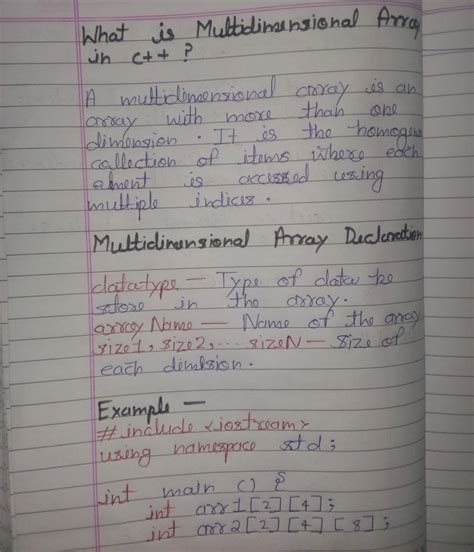 What is Multidimensional Array
in C++ ?
A multidimensional array is an
array with more than one
dimension. It is the homogen
collection of items where each
elment is accessed using
multiple indices.
Multidimensional Array Declaration
datatype — Type of data be
store in the array.
array Name — Name of the array
size1, size2, ... sizeN — size of
each dimision.
Example —
# include <iostream>
using namespace std;
int main () {
int arr1 [2] [4];
int arr2 [2] [4] [8];